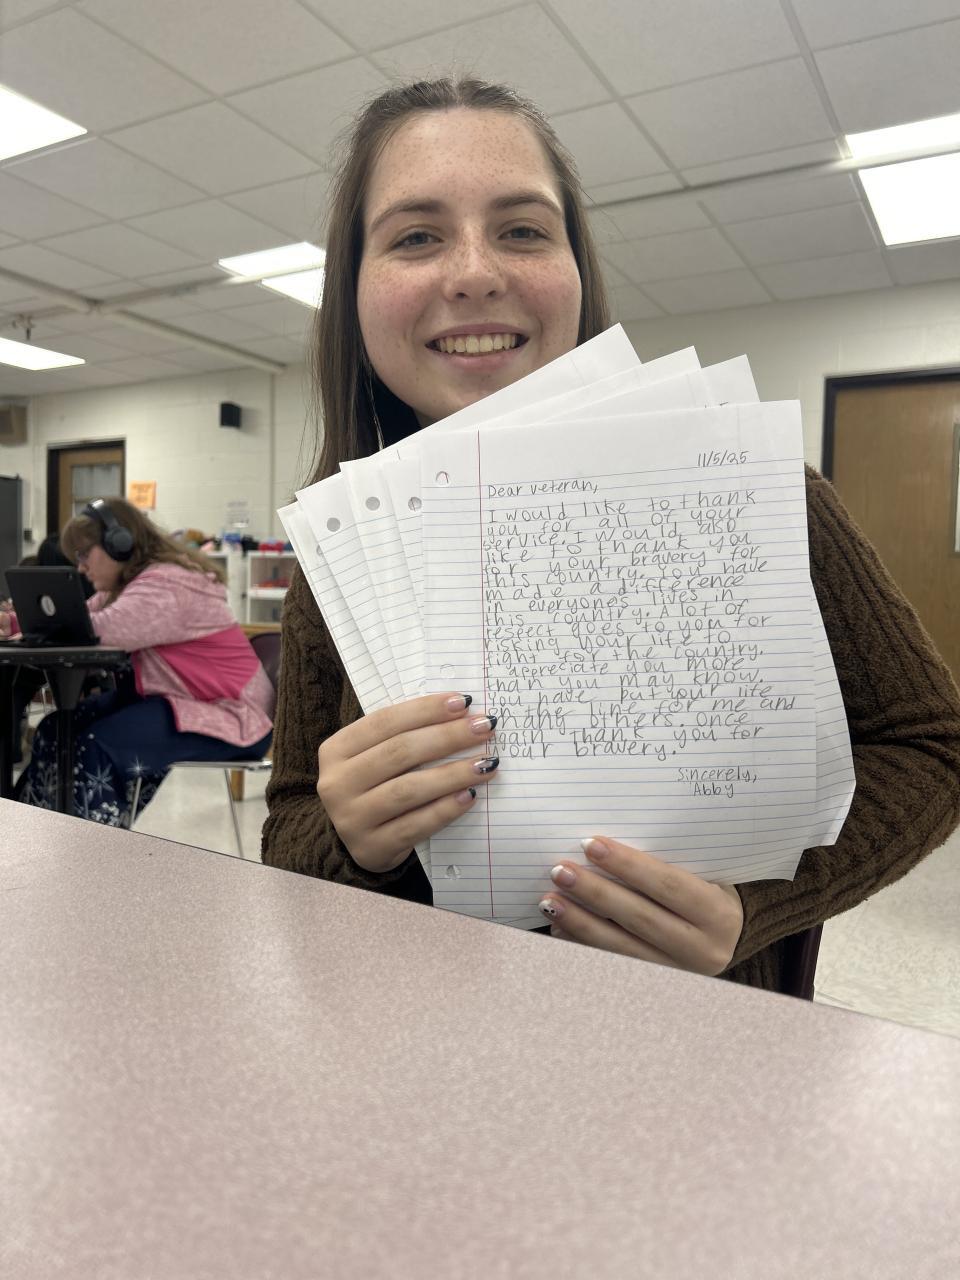 11/5/25
Dear veteran,
I would like to thank
you for all of your
service. I would also
like to thank you
for your bravery for
this country. You have
made a difference
in everyones lifes in
this country. A lot of
respect goes to you for
risking your life to
fight for the country.
I appreciate you more
than you may know.
You have but your life
on the line for me and
many others. Once
again thank you for
your bravery.
Sincerely,
Abby